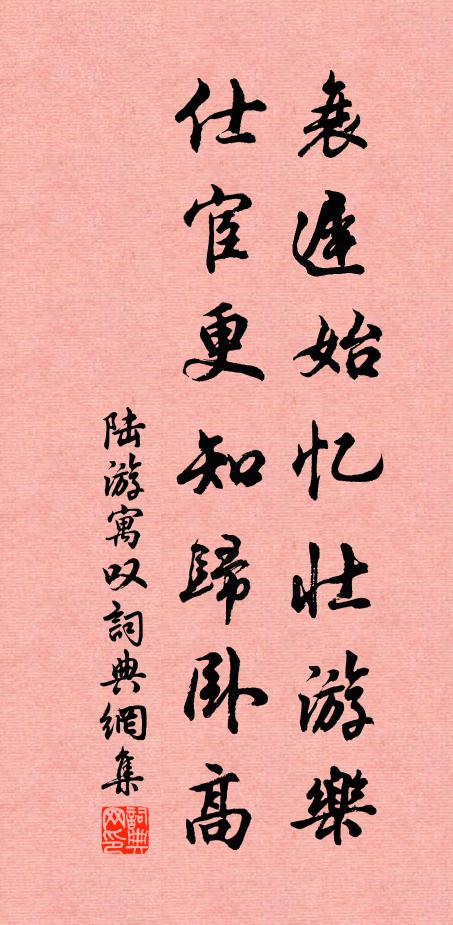 衰遲始忆壮游樂
仕宦更知歸卧高
陆游寓叹詞典網集
詞典网印